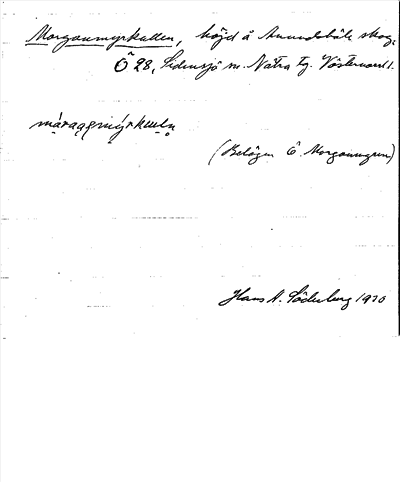 Morgonmyrkullen, höjd å Amundböle skog,
Ö 28, Sidensjö sn. Nätra tg. Västernorrl.
(Belägen Ö Morgonmyren)
Hans A. Söderberg 1930